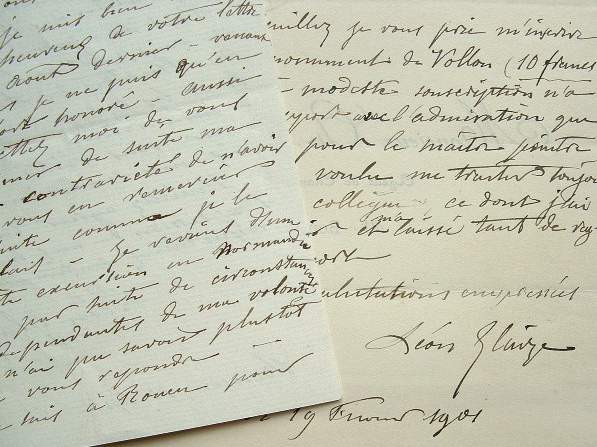 je suis bien
heureux de votre lettre
Aout dernier - venant
je ne puis qu'en
honoré - aussi
moi de vous
de suite ma
contrariété de n'avoir
vous en remercier
suite comme je le
- Je revenais d'une
excursion en Normandie
par suite de circonstances
dépendantes de ma volonté
n'ai pu savoir plustot
vous repondre
suis à Rouen pour
je vous prie m'inscrire
monument de Vollon (10 francs
modeste souscription n'a
avec l'admiration que
pour le maître peintre
voulu me traiter toujours
collègue ce dont j'suis
m'a
et laissé tant de reg-
salutations empressées
Léon
19 Fevrier 1901